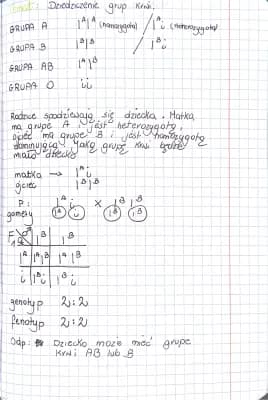 Temat: Dziedziczenie grup krwi.
GRUPA A I^A I^A (homozygota) / I^A i (heterozygota)
GRUPA B I^B I^B / I^B i
GRUPA AB I^A I^B
GRUPA O ii
Rodzice spodziewają się dziecka. Matka
ma grupę A i jest heterozygotą,
ojciec ma grupę B i jest homozygotą
dominującą. Jaką grupę krwi będzie
miało dziecko
matka → I^A i
ojciec I^B I^B
P: I^A i × I^B I^B
gamety I^A i I^B I^B
F1 ♀ ♂ I^B I^B
I^A I^A I^B I^A I^B
i I^B i I^B i
genotyp 2:2
fenotyp 2:2
Odp: Dziecko może mieć grupę
krwi AB lub B